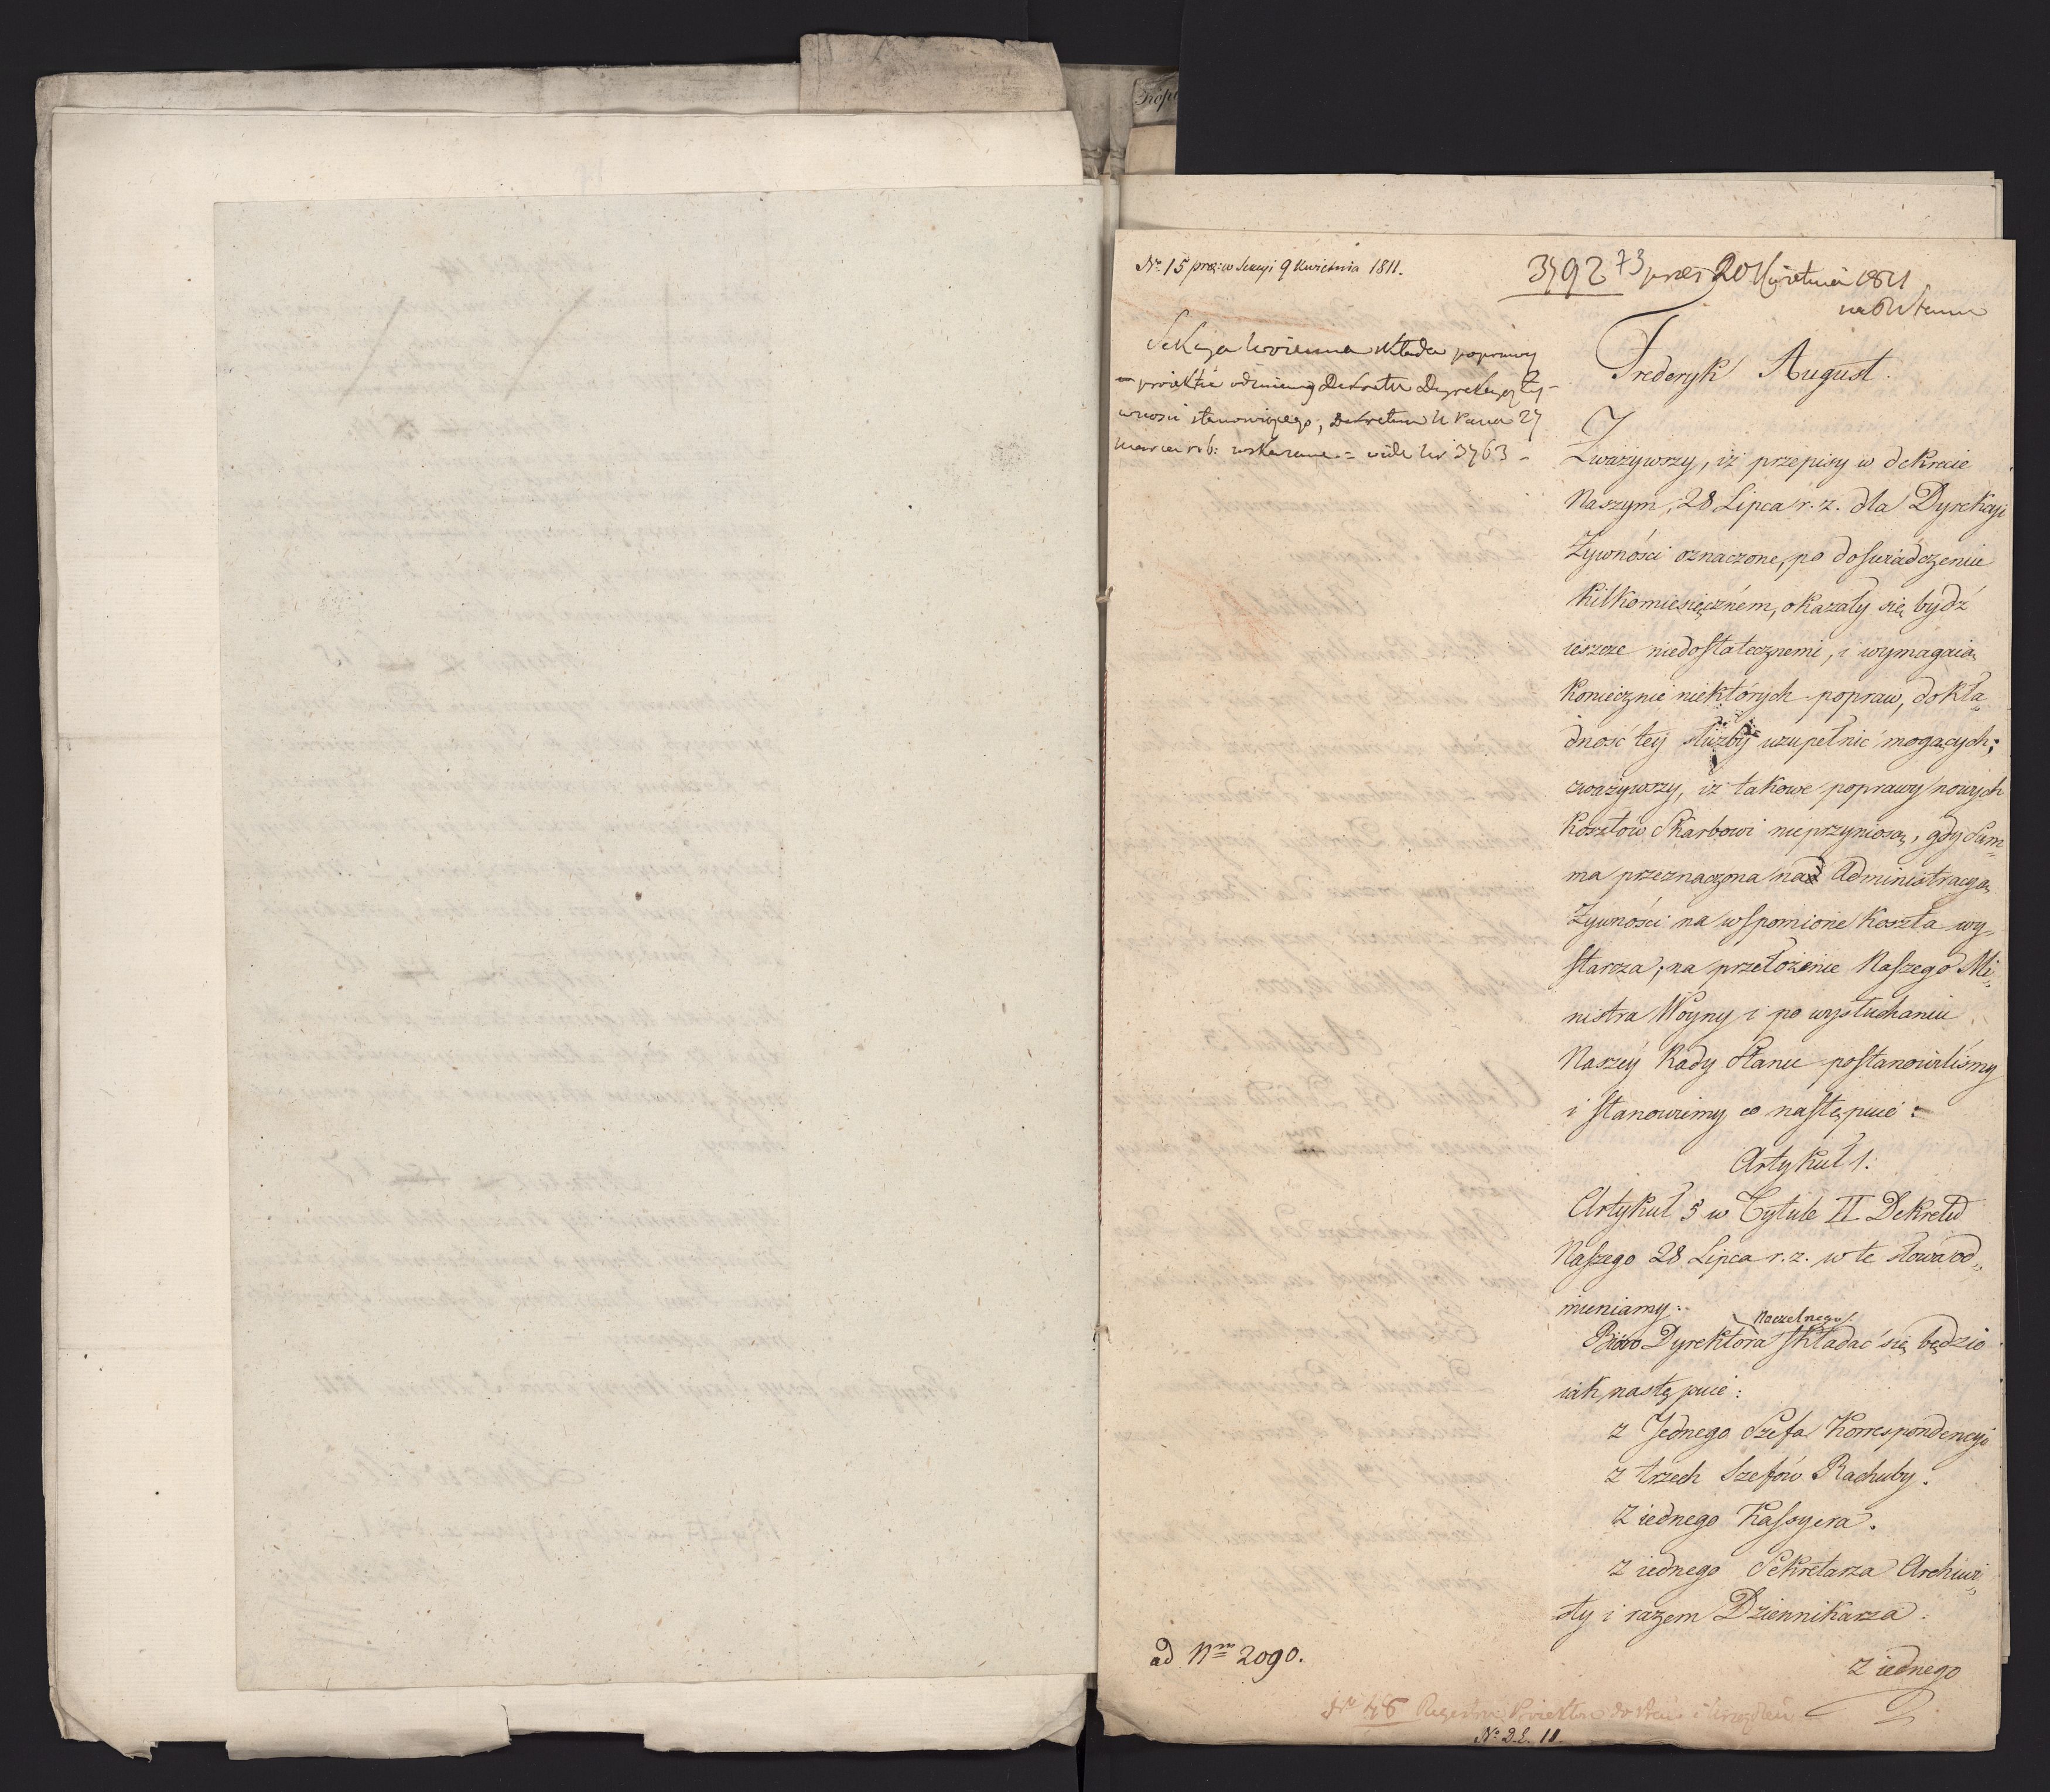 No. 15 prez: w Sekcyi 9 Kwietnia 1811.
3792 73 prez 20 Kwietnia 1811
Sekcya Woienna składa poprawy
w proiekcie odmiany Dekretu Dyrekcyą Ży-
wności stanowiącego, Dekretem N Pana 27
Marca r b: wskazane. = vide Nr 3763 -
Frederyk August.
Zważywszy, iż przepisy w dekrecie
Naszym, 28 Lipca r. z. dla Dyrekcyi
Żywności oznaczone, po doświadczeniu
kilkomiesięcznem, okazały się bydź
ieszcze niedostatecznemi, i wymagaią
koniecznie niektórych popraw, dokła„
dność tey służby uzupełnić mogących;
zważywszy, iż takowe poprawy nowych
kosztów Skarbowi nieprzyniosą, gdy Sum„
ma przeznaczona na Administracyą
Żywności na wspomione koszta wy„
starcza; na przełożenie Naszego Mi„
nistra Woyny i po wysłuchaniu
Naszéy Rady Stanu postanowiliśmy
i stanowimy co następuie:
Artykuł 1.
Artykuł 5 w Tytule II Dekretu
Naszego 28 Lipca r. z. w te słowa od„
mieniamy:
Naczelnego
Biòro Dyrektora składać się będzie
iak następuie:
z Jednego Szefa Korrespondencyi
z trzech Szefów Rachuby.
z iednego Kassyera.
z iednego Sekretarza Archiwi„
sty i razem Dziennikarza.
z iednego
ad Nrm 2090.
Nr 48
No. D.E. 11.